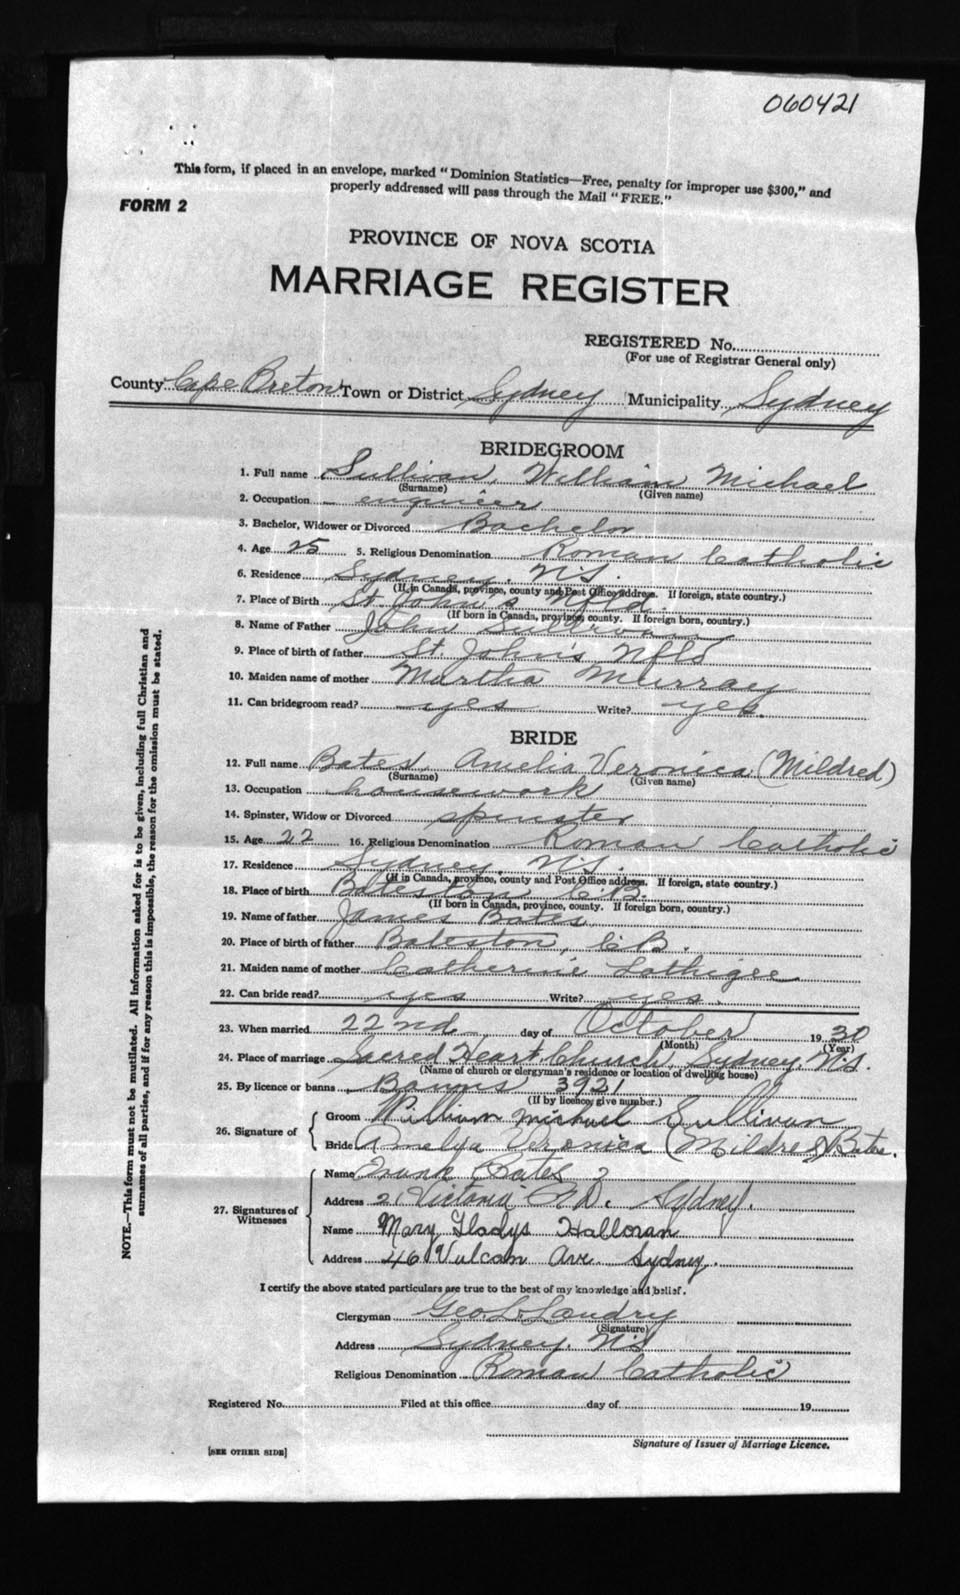 060421
This form, if placed in an envelope, marked "Dominion Statistics—Free, penalty for improper use $300," and
properly addressed will pass through the Mail "FREE."
FORM 2
PROVINCE OF NOVA SCOTIA
MARRIAGE REGISTER
REGISTERED No.
(For use of Registrar General only)
County Cape Breton Town or District Sydney Municipality Sydney
BRIDEGROOM
1. Full name Sullivan, William Michael
(Surname) (Given name)
2. Occupation engineer
3. Bachelor, Widower or Divorced Bachelor
4. Age 25 5. Religious Denomination Roman Catholic
6. Residence Sydney, N.S.
(If in Canada, province, county and Post Office address. If foreign, state country.)
7. Place of Birth St. John's Nfld.
(If born in Canada, province, county. If foreign born, country.)
8. Name of Father John Sullivan
9. Place of birth of father St. John's Nfld
10. Maiden name of mother Martha Murray
11. Can bridegroom read? yes Write? yes.
BRIDE
12. Full name Bates, Amelia Veronica (Mildred)
(Surname) (Given name)
13. Occupation housework
14. Spinster, Widow or Divorced spinster
15. Age 22 16. Religious Denomination Roman Catholic
17. Residence Sydney, N.S.
(If in Canada, province, county and Post Office address. If foreign, state country.)
18. Place of birth Bateston C.B.
(If born in Canada, province, county. If foreign born, country.)
19. Name of father James Bates
20. Place of birth of father Bateston, C.B.
21. Maiden name of mother Catherine Lathigee
22. Can bride read? yes Write? yes.
23. When married 22nd day of October 1930
(Month) (Year)
24. Place of marriage Sacred Heart Church, Sydney, N.S.
(Name of church or clergyman's residence or location of dwelling house)
25. By licence or banns Banns 3921
(If by licence, give number.)
26. Signature of
Groom William Michael Sullivan
Bride Amelya Veronica (Mildred) Bates.
27. Signatures of Witnesses
Name Frank Bates
Address 21 Victoria RD. Sydney.
Name Mary Gladys Halloran
Address 46 Vulcan Ave. Sydney.
I certify the above stated particulars are true to the best of my knowledge and belief.
Clergyman Geo. L. Landry
(Signature)
Address Sydney, N.S
Religious Denomination Roman Catholic
Registered No. Filed at this office day of 19
Signature of Issuer of Marriage Licence.
[SEE OTHER SIDE]
NOTE.—This form must not be mutilated. All information asked for is to be given, including full Christian and
surnames of all parties, and if for any reason this is impossible, the reason for the omission must be stated.